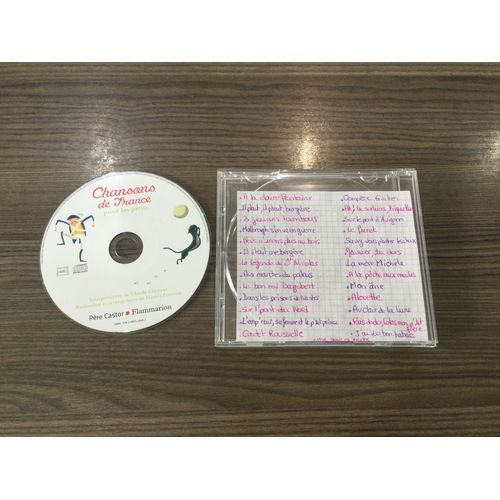 Chansons
de France
pour les petits
Interprétation de Claude Clément
Père Castor Flammarion
. A la claire fontaine
. Il pleut, il pleut bergère
. 3 jeunes tambours
. Malbrough s'en va en guerre
. Nous n'irons plus au bois
. Il était une bergère
. La légende de St Nicolas
. Aux marches du palais
. Le bon roi Dagobert
. Dans les prisons de Nantes
. Sur l'pont du Nord
. L'empereur, sa femme et le p'tit prince
. Cadet Rousselle
. Compère Guilleri
. Ah ! tu sortiras Biquette
. Sur le pont d'Avignon
. Le furet
. Savez vous planter les choux
. Joueur du
. La mère Michèle
. A la pêche aux moules
. Mon âne
. Alouette
. Au clair de la lune
. Fais dodo, Colas mon p'tit frère
. J'ai du bon tabac